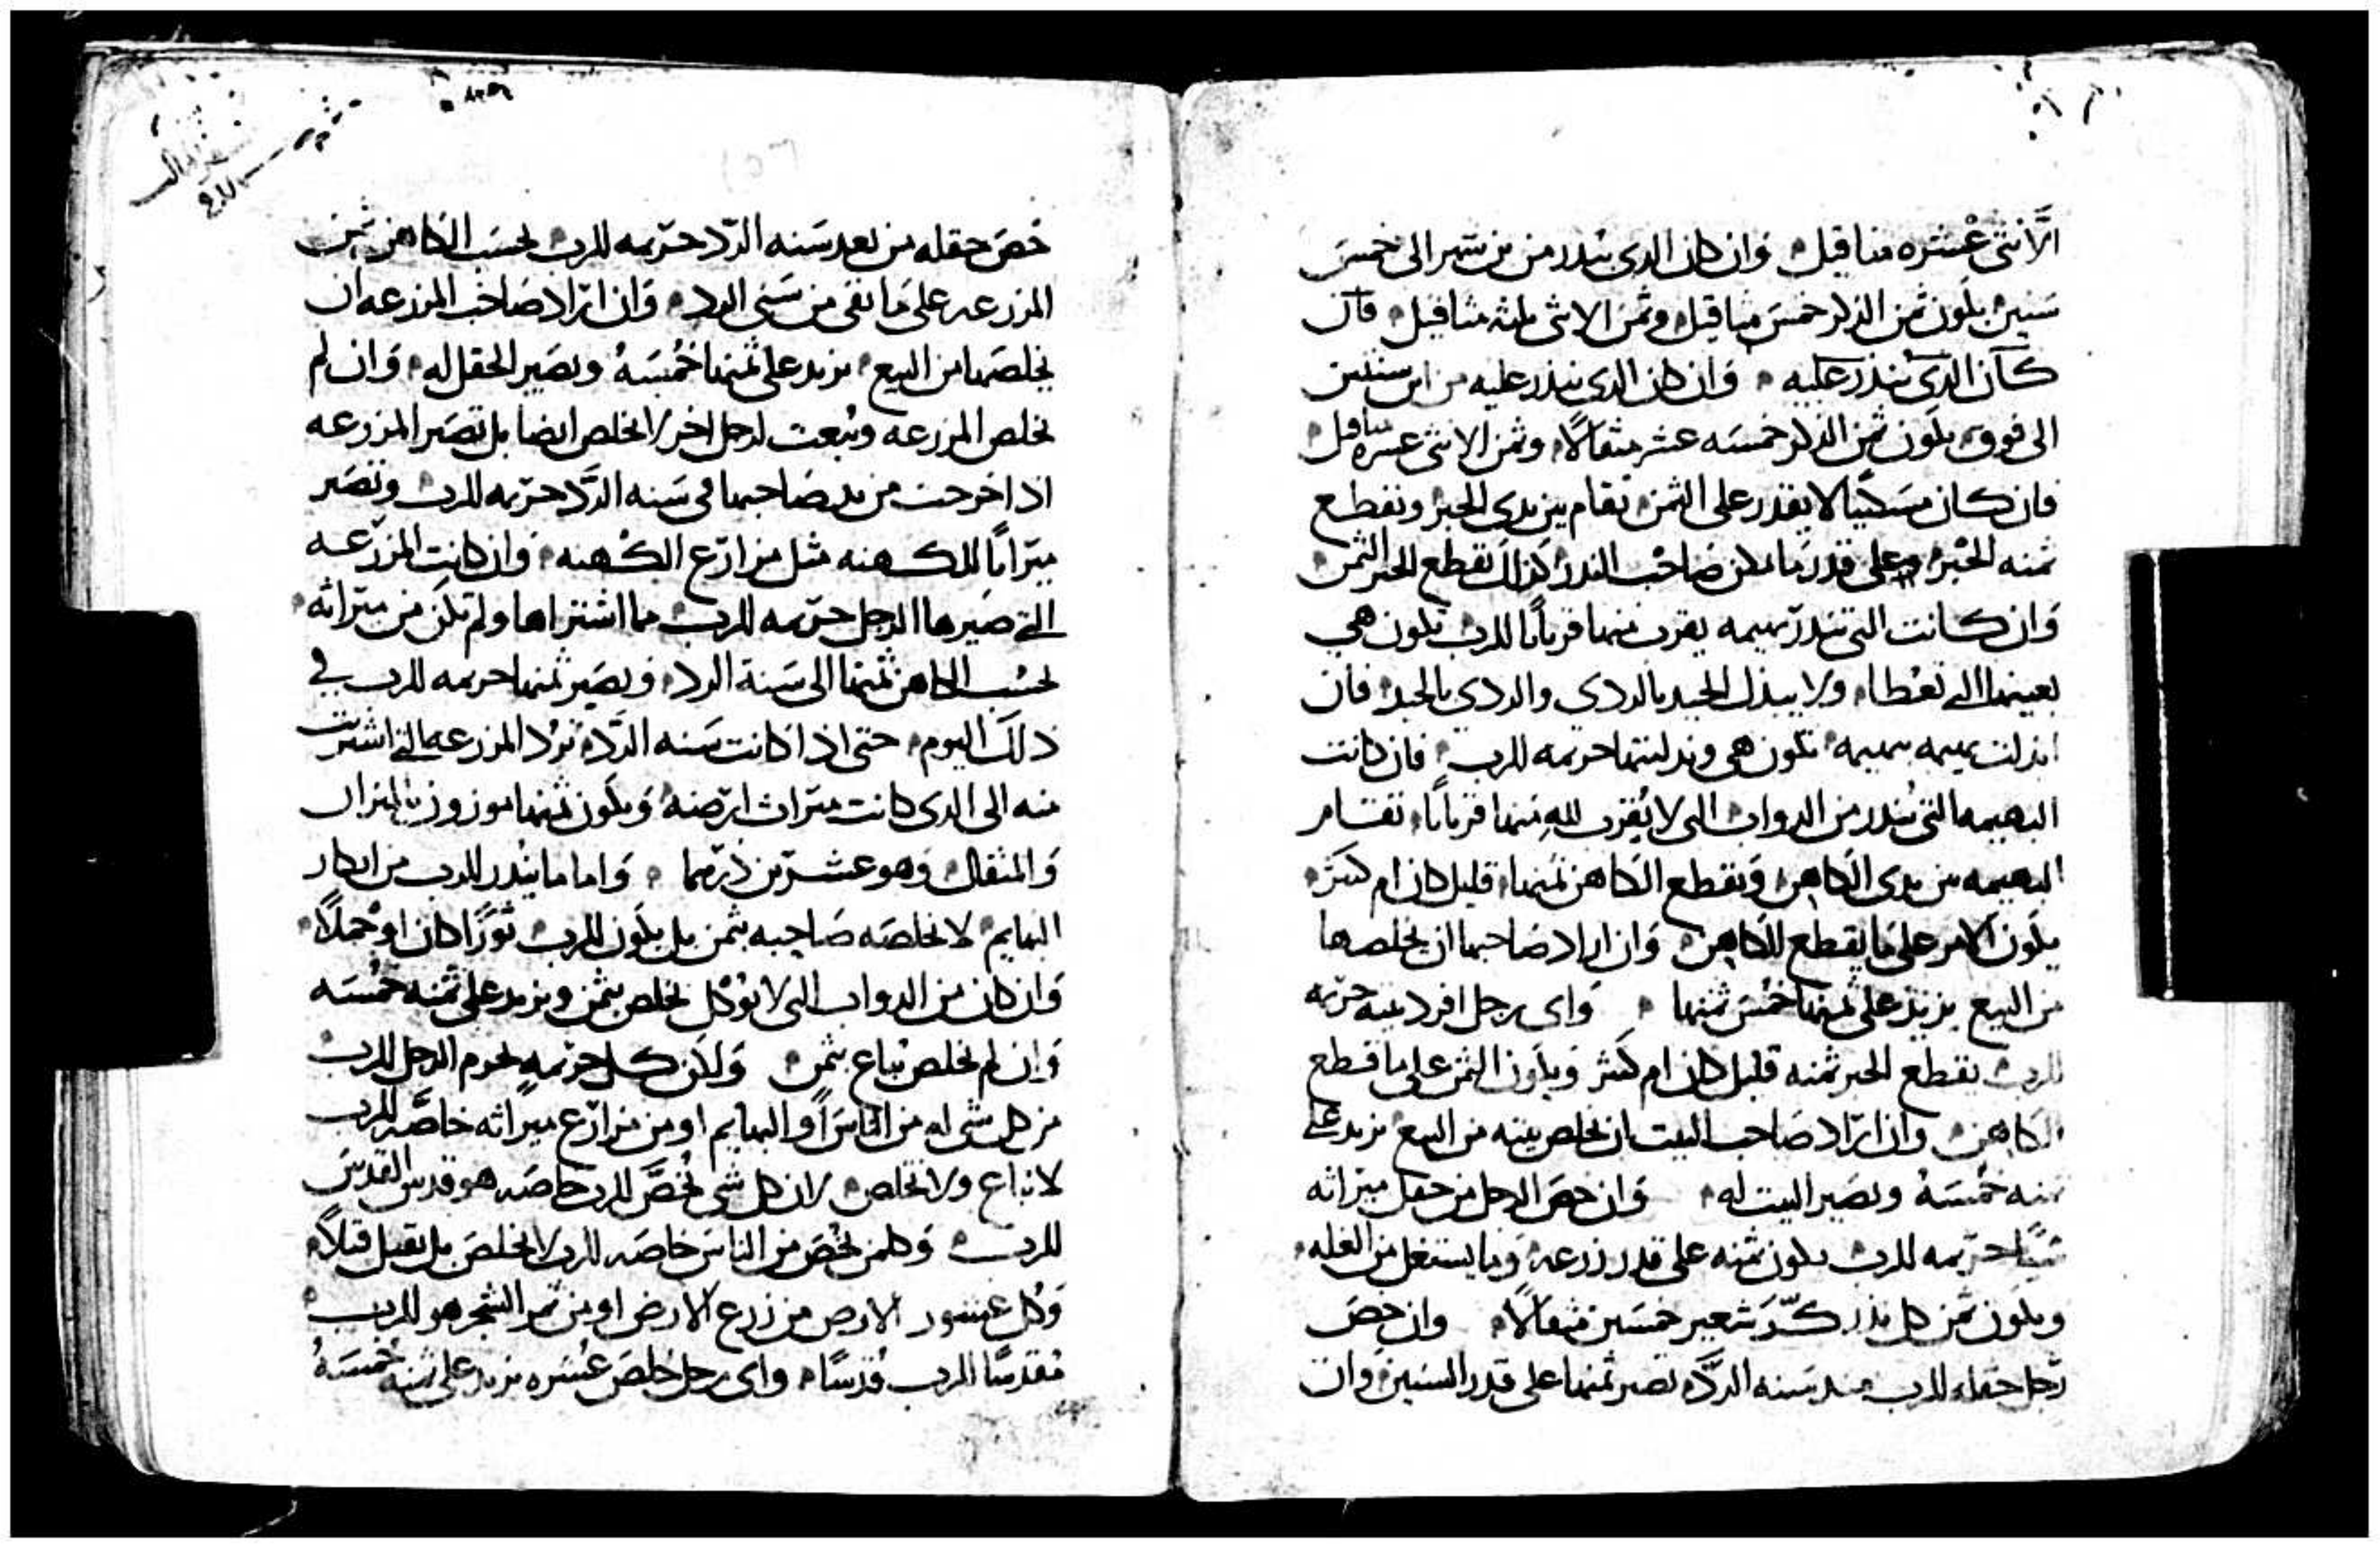 الانثى عشره مثاقيل وان كان الدى ينذر من بن شهر الى خمس
سنين يكون ثمن الذكر خمس مثاقيل وثمن الانثى ثلثه مثاقيل فان
كان الدى ينذر عليه وان كان الدى ينذر عليه من ابن ستين
الى فوق يكون ثمن الذكر خمسه عشر مثقالا وثمن الانثى عشره مثاقيل
فان كان مسكينا لا يقدر على الثمن تقام بين يدى الحبر ونقطع
ثمنه الحبر وعلى قدر ما يمكن صاحب الندر كذلك يقطع الحبر الثمن
وان كانت التى تنذر بهيمه يقرب منها قربانا للرب تكون هي
بعينها التى تعطا ولا يبدل الجيد بالردي والردي بالجيد فان
ابدلت بهيمه ببهيمه تكون هى وبدليتها حريمه للرب فان كانت
البهيمه التى تنذر من الدواب التى لا يقرب لله منها قربانا تقام
البهيمه بين يدى الكاهن ويقطع الكاهن ثمنها قليل كان ام كثير
يكون الامر على ما يقطع الكاهن وان اراد صاحبها ان يخلصها
من البيع يزيد على ثمنها خمس ثمنها واى رجل افرد بيته حريمه
للرب يقطع الحبر ثمنه قليل كان ام كثير ويكون الثمن على ما قطع
الكاهن وان اراد صاحب البيت ان يخلص بيته من البيع يزيد على
ثمنه خمسه ويصير البيت له وان خص الرجل من حقل ميراثه
شيئا حريمه للرب يكون ثمنه على قدر زرعه وما يستغل من الغله
ويكون ثمن كل بذر كر شعير خمسين مثقالا وان خص
رجل حقله للرب منذ سنه الرد تصير ثمنها على قدر السنين وان
خص حقله من بعد سنه الرد حريمه للرب يحسب الكاهن ثمن
المزرعه على ما بقى من سنى الرد وان اراد صاحب المزرعه ان
يخلصها من البيع يزيد على ثمنها خمسه ويصير الحقل له وان لم
يخلص المزرعه وبيعت لرجل اخر لا يخلص ايضا بل تصير المزرعه
اذا خرجت من يد صاحبها فى سنه الرد حريمه للرب وتصير
ميراثا للكهنه مثل مزارع الكهنه وان كانت المزرعه
التى صيرها الرجل حريمه للرب مما اشتراها ولم تكن من ميراثه
يحسب الكاهن ثمنها الى سنة الرد ويصير ثمنها حريمه للرب في
ذلك اليوم حتى اذا كانت سنه الرد ترد المزرعه التى اشتريت
منه الى الدى كانت ميراث ارضه ويكون ثمنها موزون بالميزان
والمثقال وهو عشرين درهما واما ما ينذر للرب من ابكار
البهايم لا يخلصه صاحبه بثمن بل يكون للرب ثورا كان او حملا
وان كان من الدواب التى لا توكل يخلص بثمن ويزيد على ثمنه خمسه
وان لم يخلص يباع بثمن ولكن كل حريمه يحرم الرجل للرب
من كل شى له من الناس او البهايم او من مزارع ميراثه خاصه للرب
لا تباع ولا تخلص لان كل شى يخص للرب خاصه هو قدس القدس
للرب وكلمن يخص من الناس خاصه للرب لا يخلص بل يقتل قتلا
وكل عشور الارض من زرع الارض او من ثمر الشجر هو للرب
مقدسا للرب قدسا واى رجل خلص عشره يزيد على ثمنه خمسه